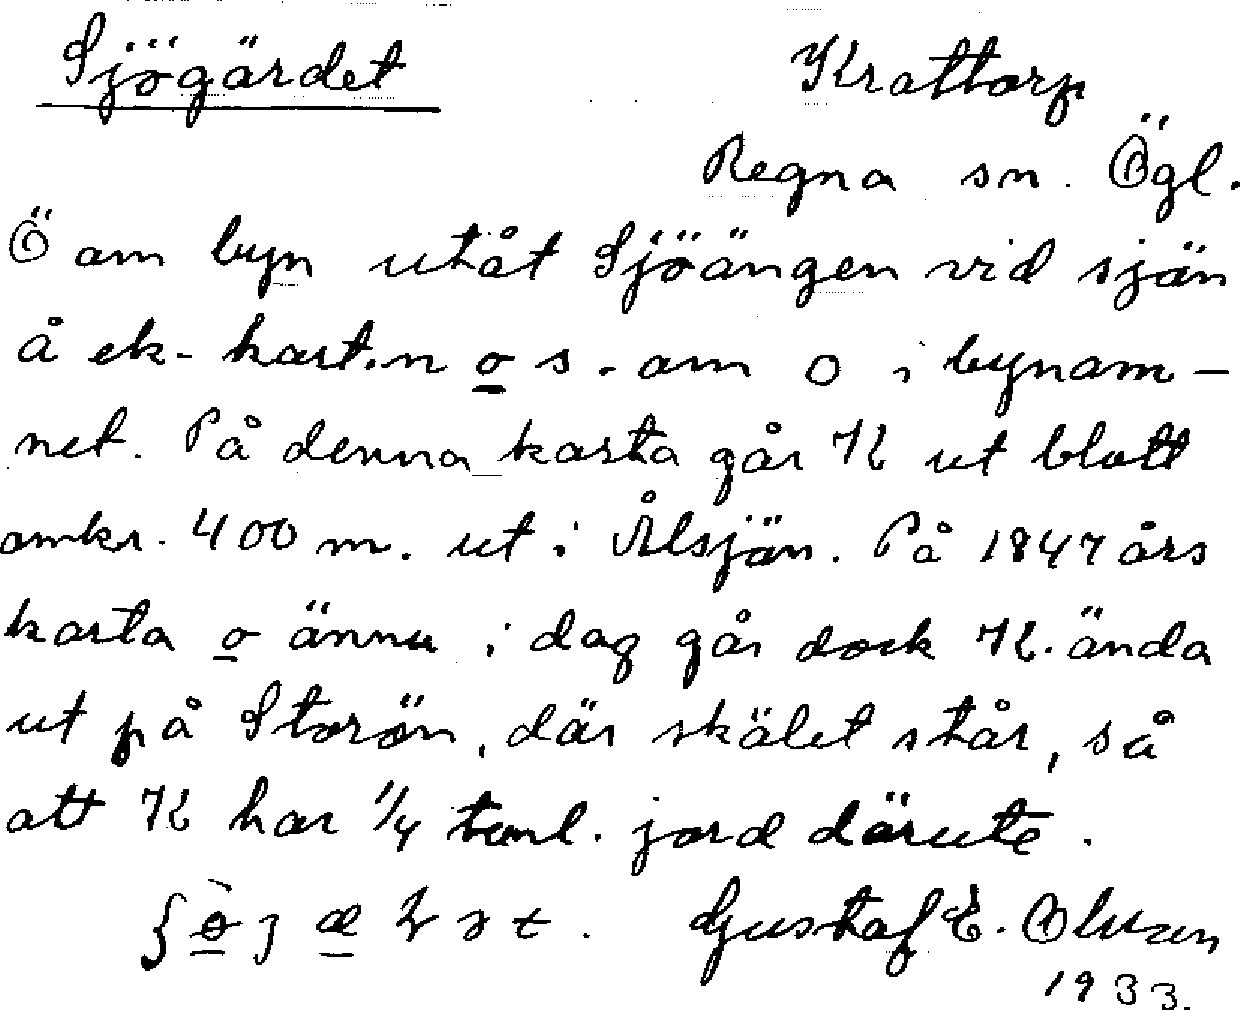 Sjögärdet Krattorp
Regna sn. Ögl.
Ö om byn utåt Sjöängen vid sjön
å ek-kart.n o s. om O i bynam-
net. På denna karta går K ut blott
omkr. 400 m. ut i Ålsjön. På 1847 års
karta o ännu i dag går dock K. ända
ut på Storön, där skälet står, så
att K har 1/4 tunl. jord därute.
Gustaf E. Olsson
1933.